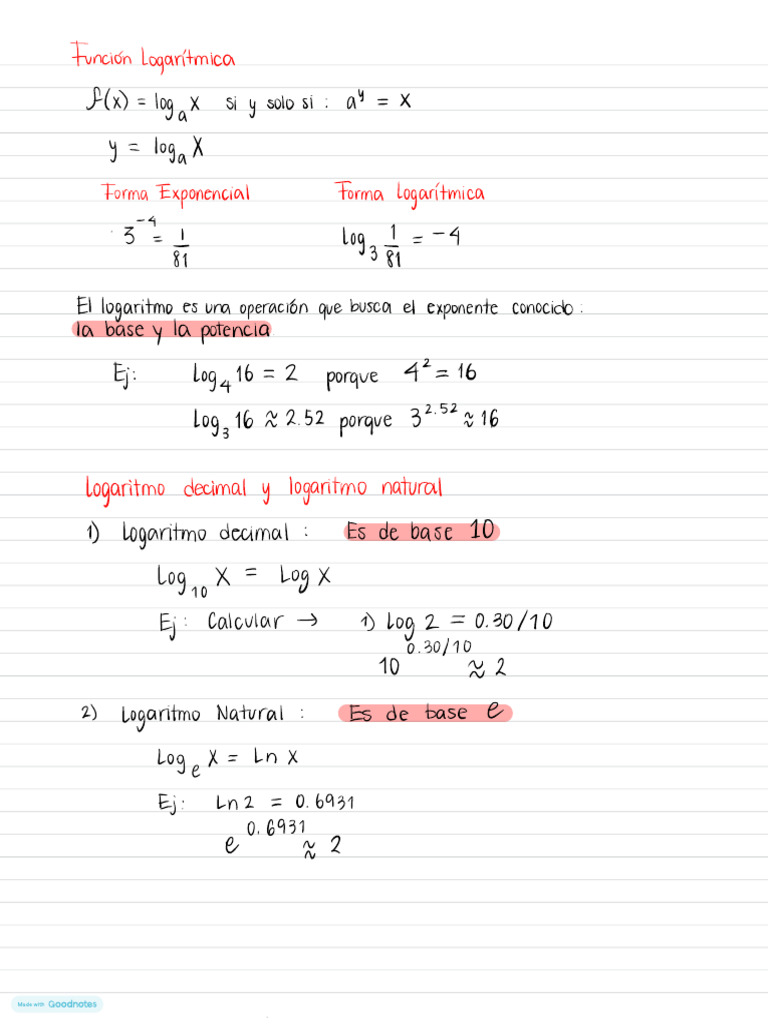 Función Logarítmica
f(x) = log_a x si y solo si : a^y = x
y = log_a x
Forma Exponencial Forma Logarítmica
3^-4 = 1/81 Log_3 1/81 = -4
El logaritmo es una operación que busca el exponente conocido :
la base y la potencia
Ej: Log_4 16 = 2 porque 4^2 = 16
Log_3 16 ≈ 2.52 porque 3^2.52 ≈ 16
Logaritmo decimal y logaritmo natural
1) Logaritmo decimal : Es de base 10
Log_10 X = Log X
Ej: Calcular → 1) Log 2 = 0.30/10
10^0.30/10 ≈ 2
2) Logaritmo Natural : Es de base e
Log_e X = Ln X
Ej: Ln 2 = 0.6931
e^0.6931 ≈ 2
Made with Goodnotes